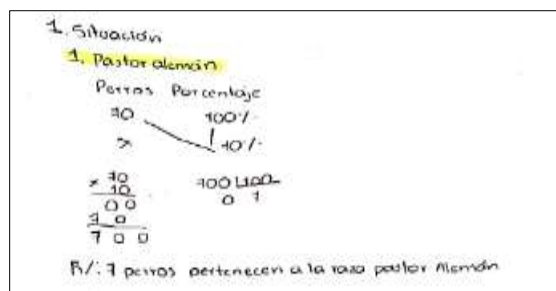 1. Situación
1. Pastor alemán
Perros Porcentaje
70 100%
x 10%
x 70 700 100
10 0 7
00
7 0
7 0 0
R/: 7 perros pertenecen a la raza pastor Alemán